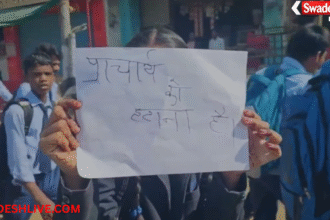 Swade
प्राचार्य
को
हटाना है।
DESHLIVE.COM